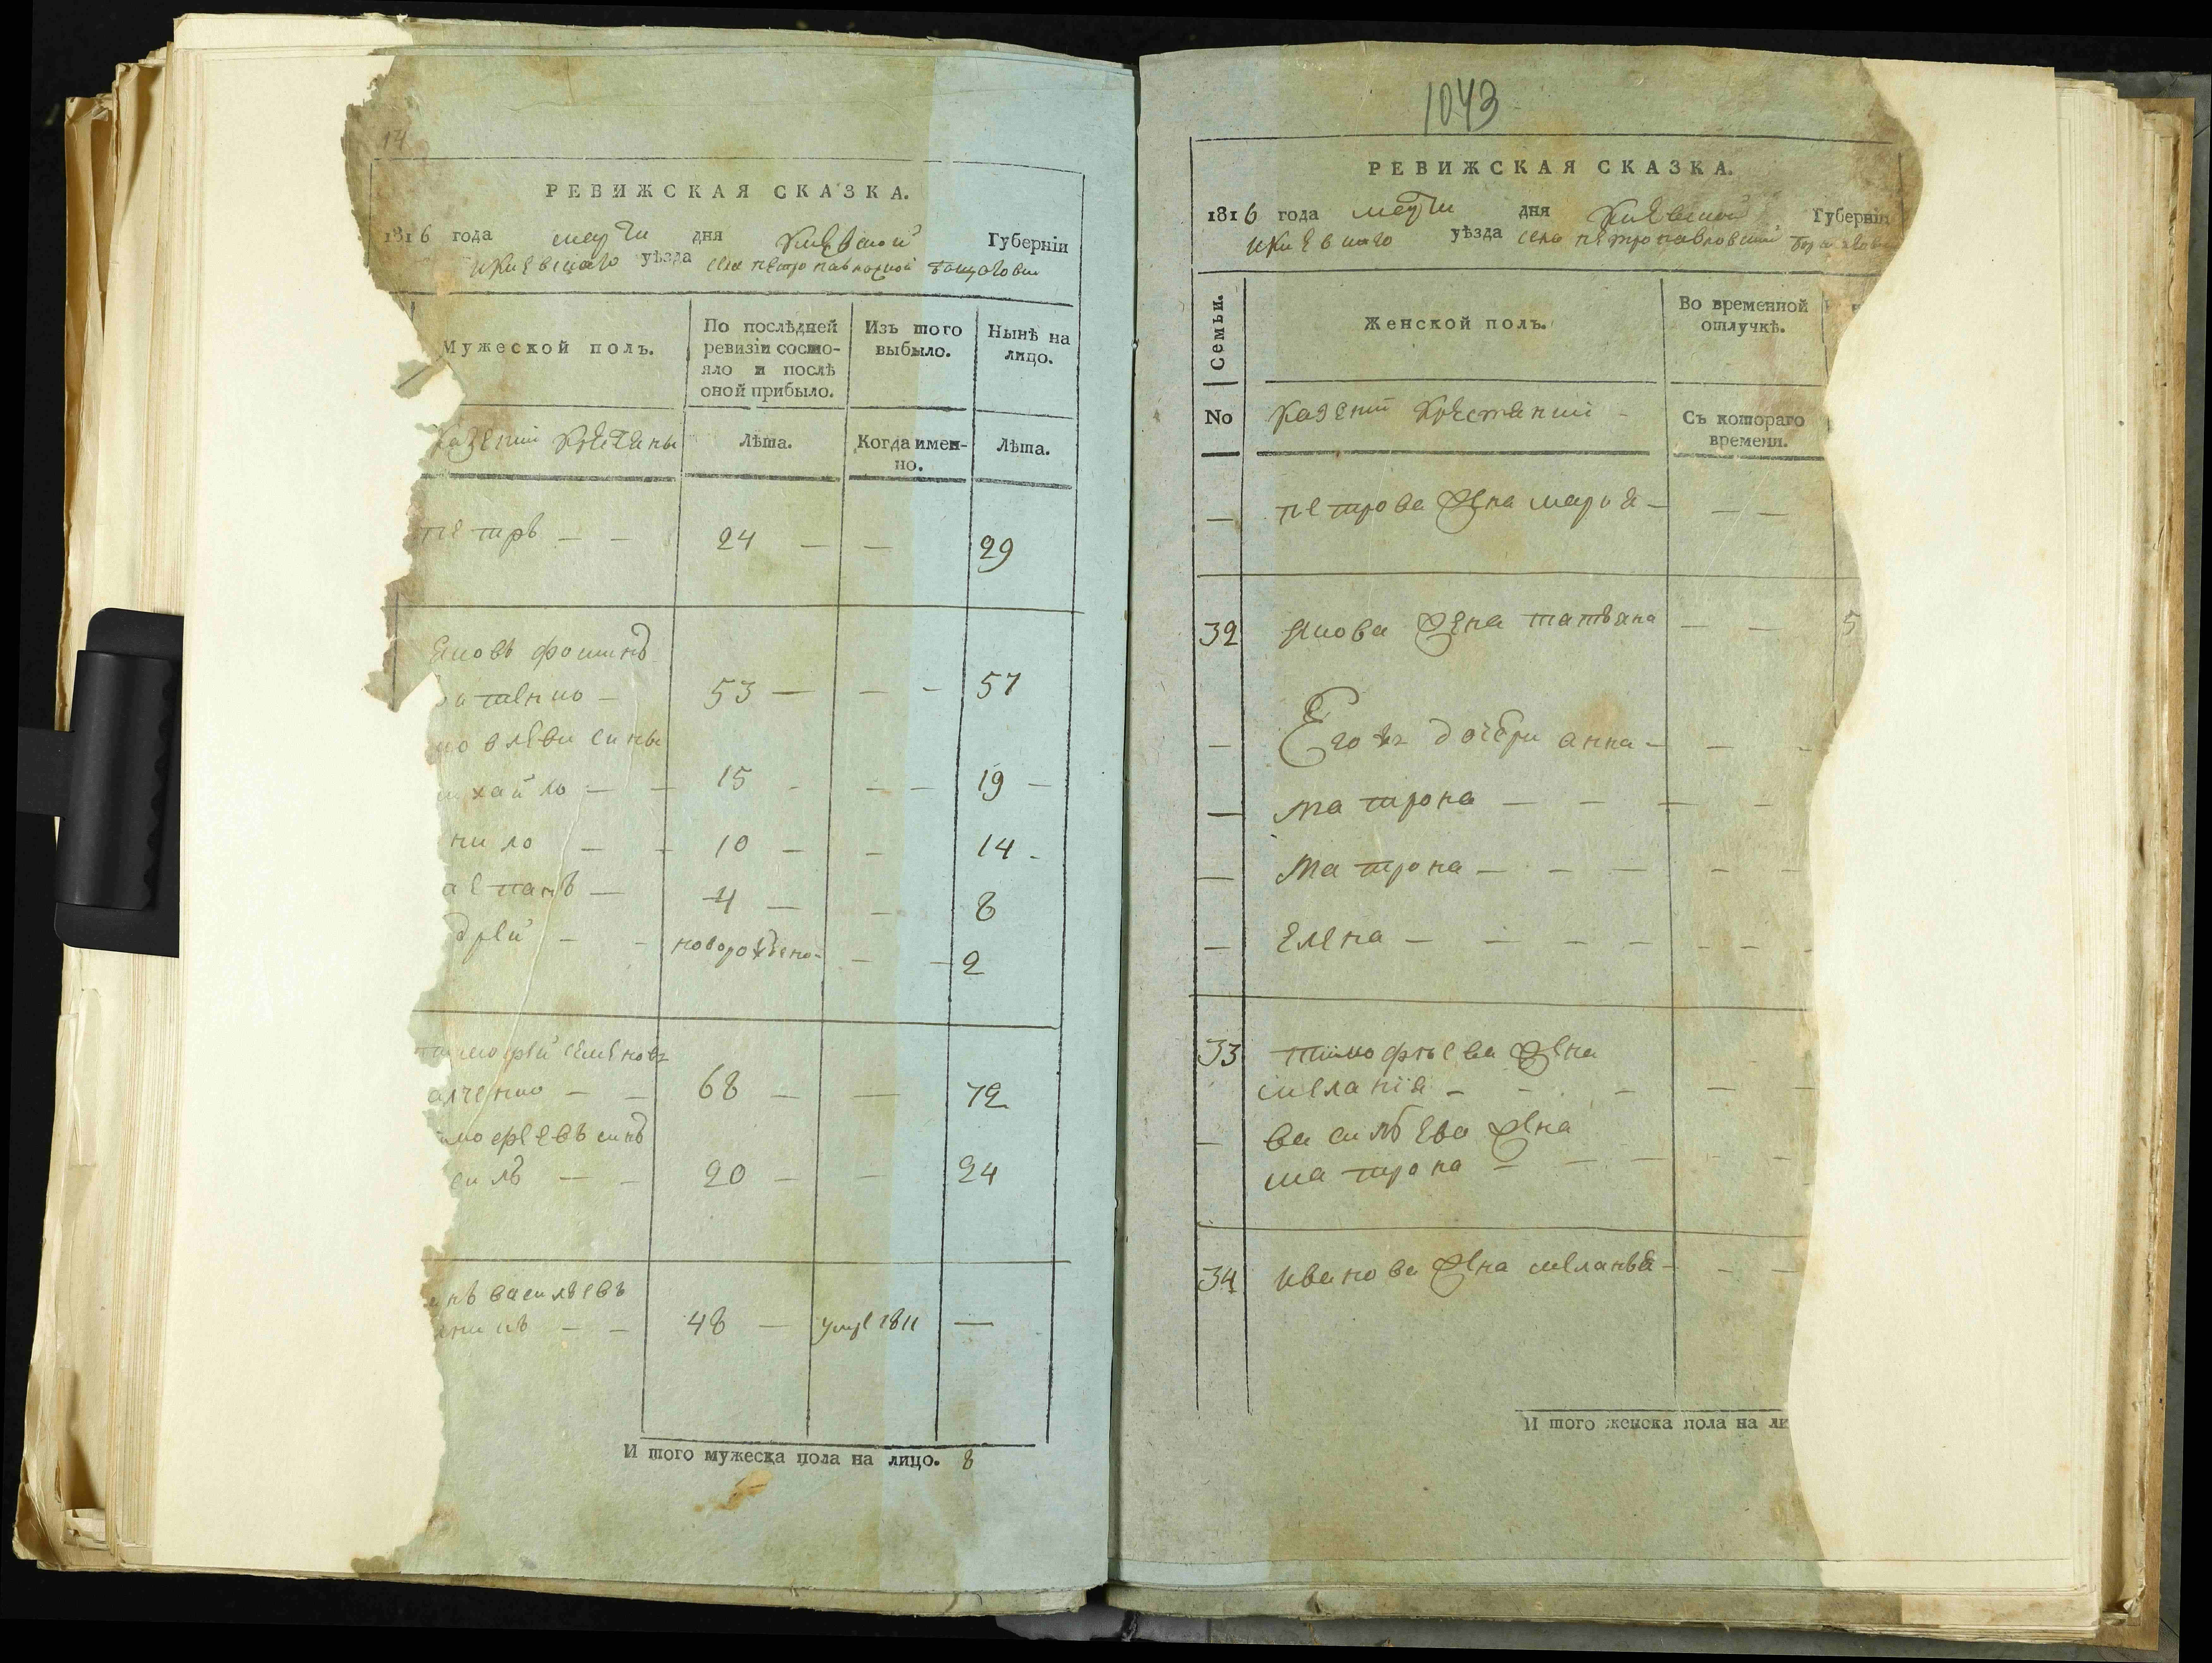 14
РЕВИЖСКАЯ СКАЗКА.
1816 года марта дня Киевской Губерніи
и Киевскаго уѣзда села петропавловской борщаговки
Мужеской полъ.
По послѣдней ревизіи состояло и послѣ оной прибыло.
Изъ того выбыло.
Нынѣ на лицо.
Казенни крестяны
Лѣта.
Когда именно.
Лѣта.
петръ — — 24 — — 29
Яковъ фоминъ
атенко — 53 — — — 57
ковлеви сины
ихайло — — 15 - — — 19 —
нило — — 10 — — 14 -
епанъ — 4 — — 8
дрей — - новорожденно- — — 2
тимофей семеновъ
алченко — — 68 — — 72
имофеевъ синъ
силь — — 20 — — 24
анъ василевъ
— — 48 — умре 1811 —
И того мужеска пола на лицо. 8
1043
РЕВИЖСКАЯ СКАЗКА.
1816 года марта дня Киевской Губерніи
и Киевскаго уѣзда села петропавловской борщаговк
Семьи.
Женской полъ.
Во временной отлучкѣ.
No
Казенни крестянки -
Съ котораго времени.
— петрова жена мария — — —
32 якова жена татьяна — — 5
— Его же дочери анна — — -
— матрона — — — —
— матрона — — — — —
— Елена — — — — - - -
33 тимофѣева жена
мелания — - — — —
— василѣва жена
матрона — — — - -
34 иванова жена меланья — — —
И того женска пола на ли